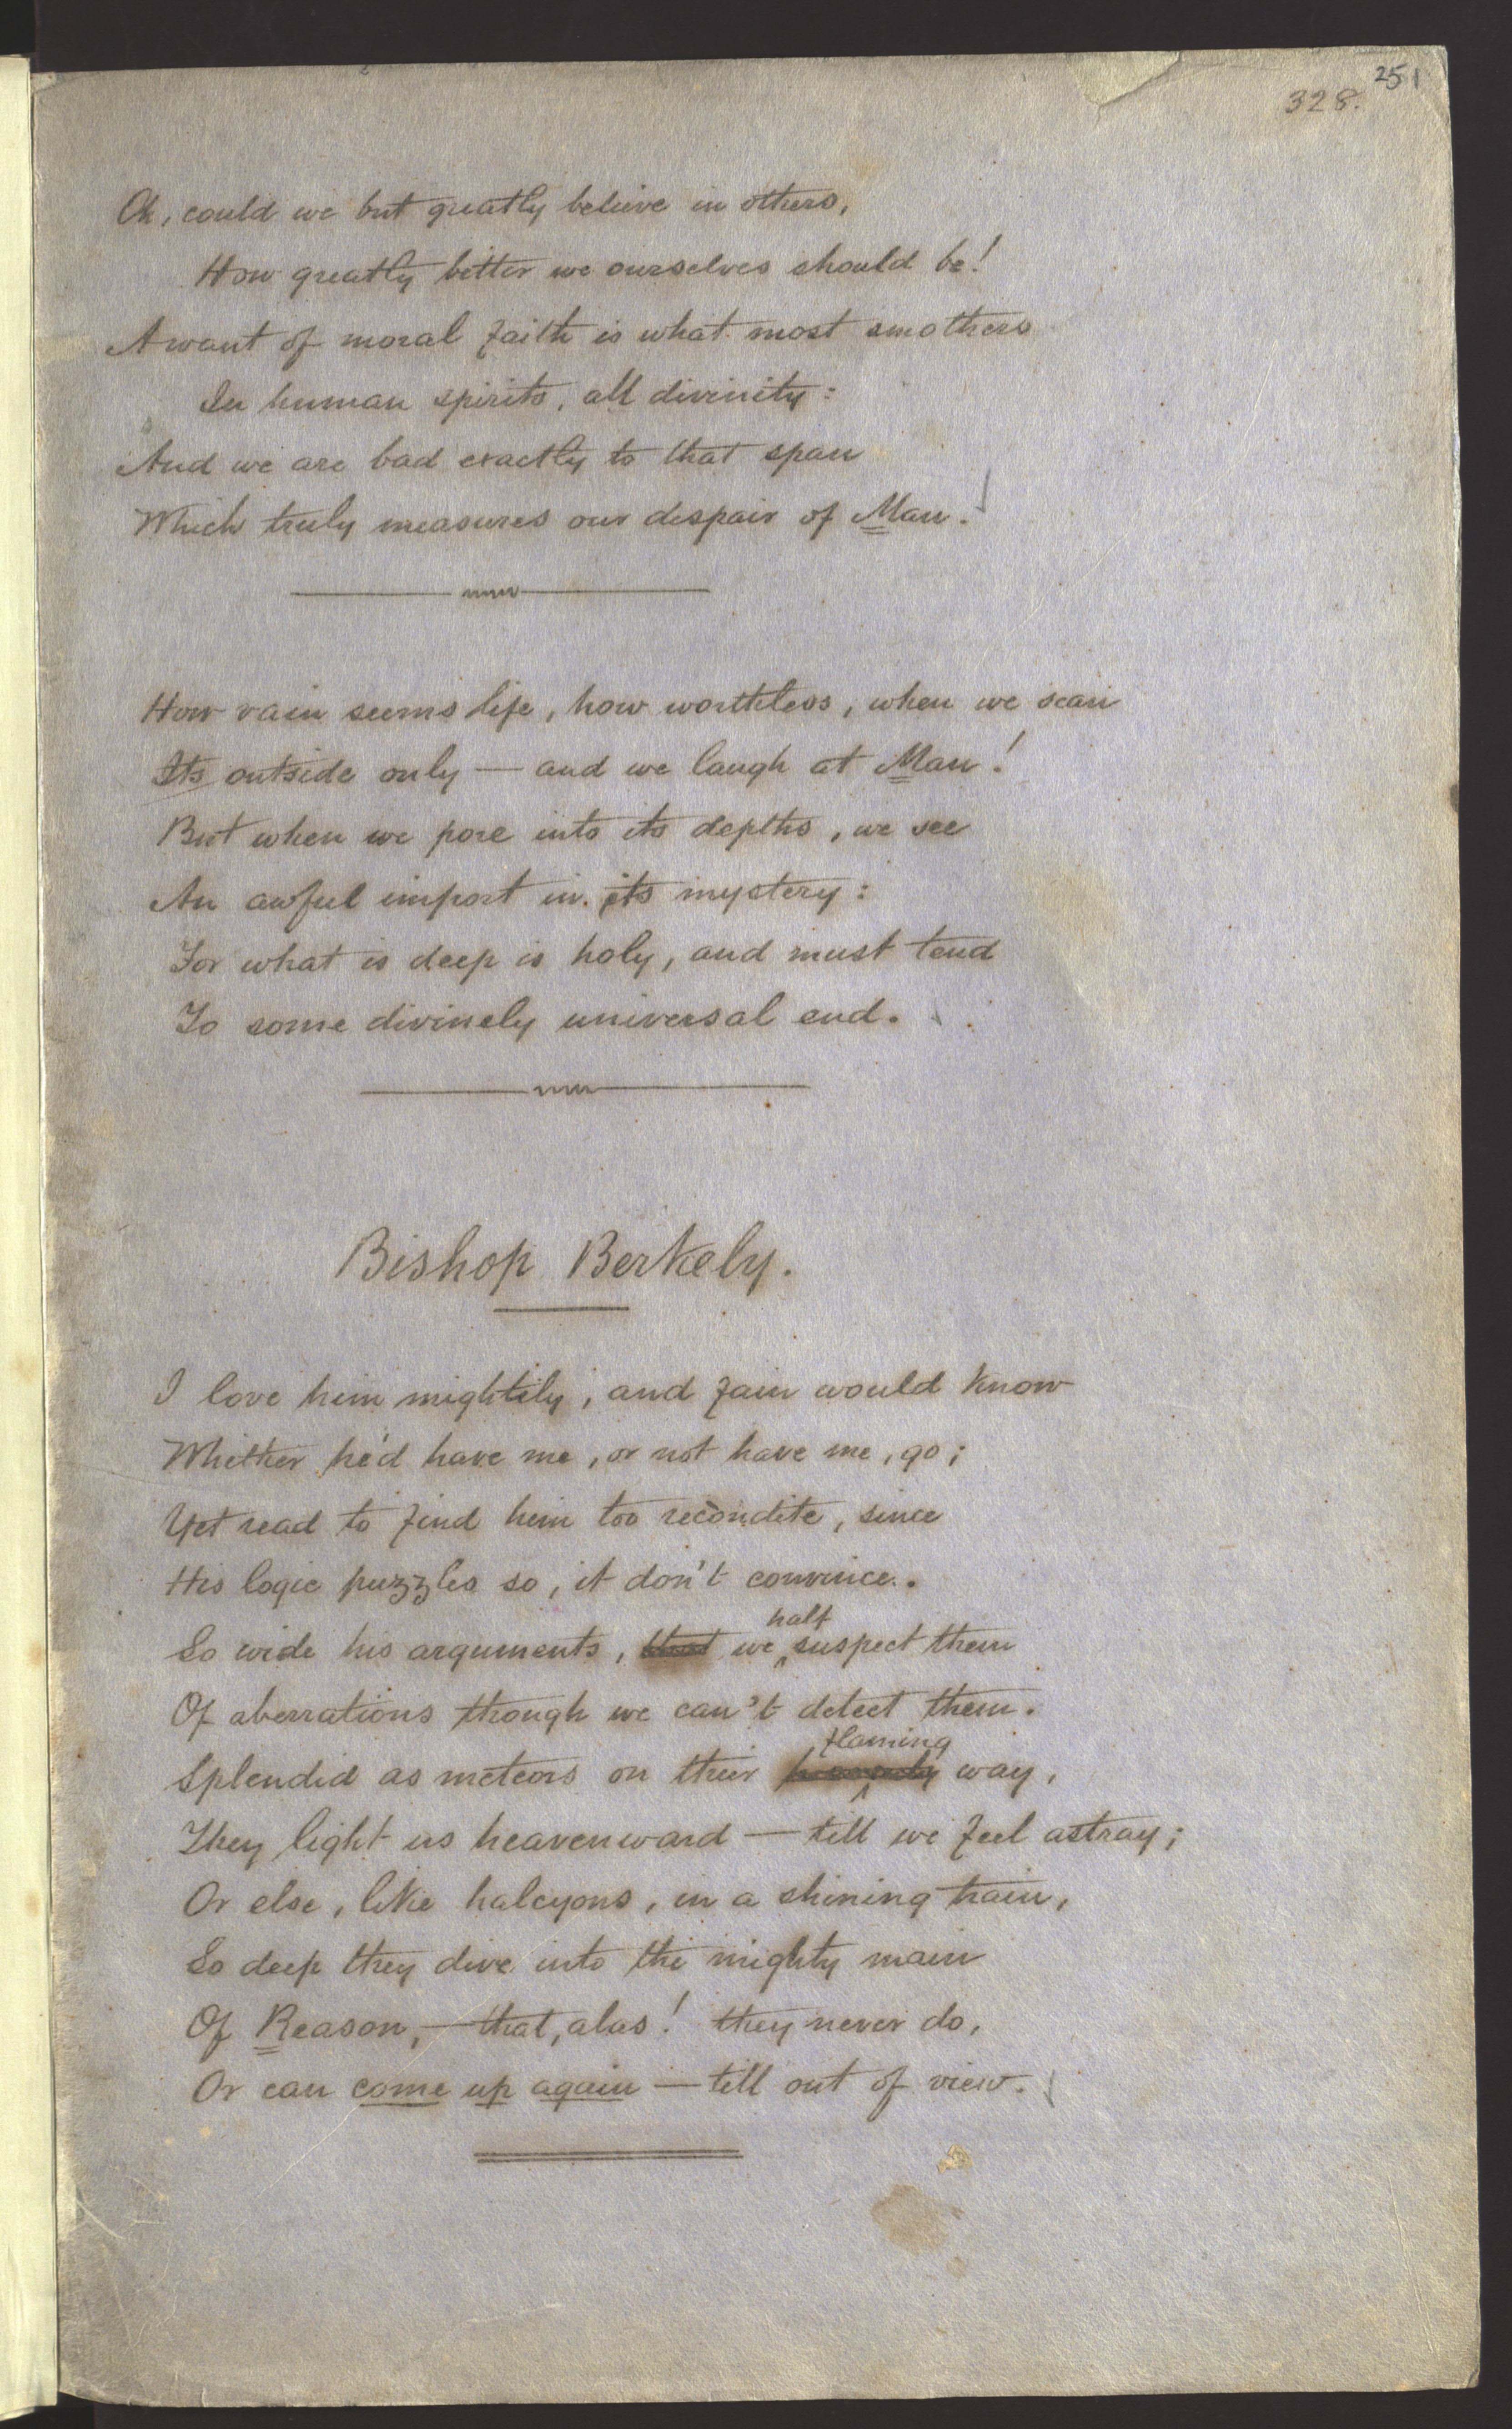 251
328.
Oh, could we but greatly believe in others,
How greatly better we ourselves should be!
A want of moral faith is what most smothers
In human spirits, all divinity:
And we are bad exactly to that span
Which truly measures our despair of Man.
How vain seems life, how worthless, when we scan
Its outside only — and we laugh at Man!
But when we pore into its depths, we see
An awful import in its mystery:
For what is deep is holy, and must tend
To some divinely universal end.
Bishop Berkely.
I love him mightily, and fain would know
Whither he'd have me, or not have me, go;
Yet read to find him too recondite, since
His logic puzzles so, it don't convince.
So wide his arguments, that we half suspect them
Of aberrations though we can't detect them.
Splendid as meteors on their flaming way,
They light us heavenward — till we feel astray;
Or else, like halcyons, in a shining train,
So deep they dive into the mighty main
Of Reason, — that, alas! they never do,
Or can come up again — till out of view.